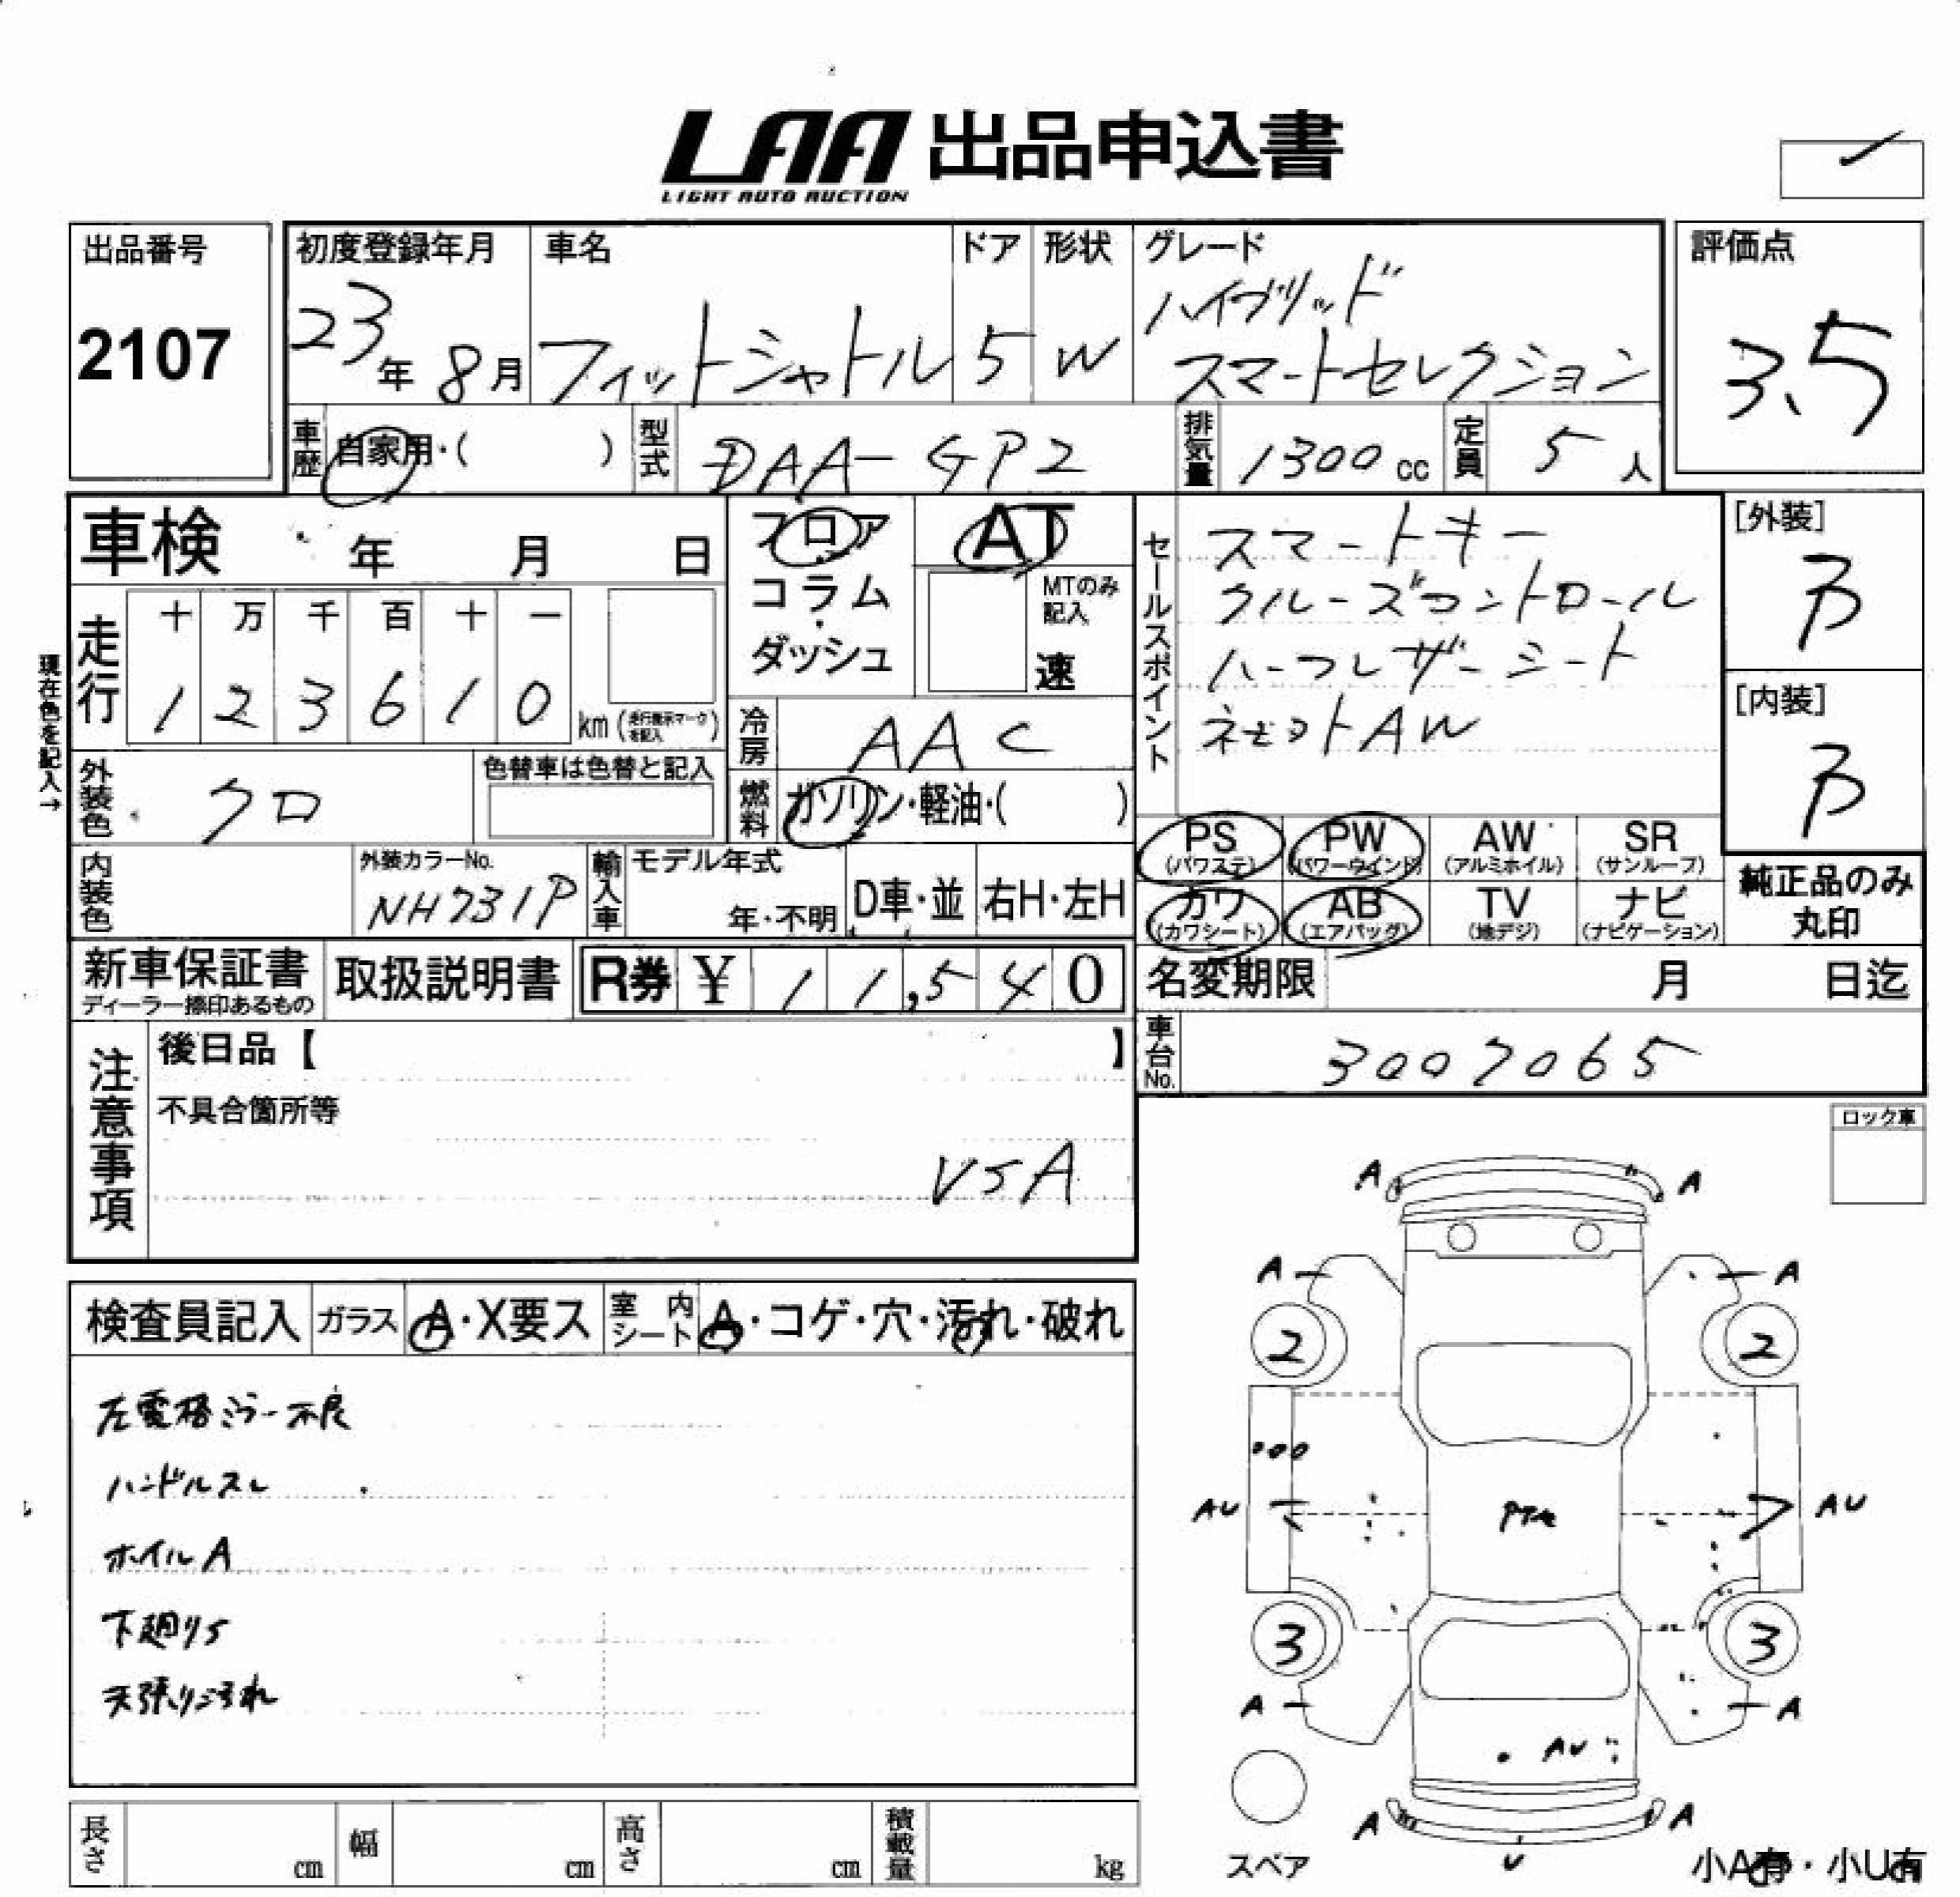 LAA 出品申込書
LIGHT AUTO AUCTION
出品番号
2107
初度登録年月
23年 8月
車名
フィットシャトル
ドア
5
形状
W
グレード
ハイブリッド
スマートセレクション
評価点
3.5
車歴 自家用・( )
型式 DAA-GP2
排気量 1300 cc
定員 5 人
車検 年 月 日
フロア
コラム
ダッシュ
AT
MTのみ記入
速
セールスポイント
スマートキー
クルーズコントロール
ハーフレザーシート
AW
[外装]
B
[内装]
B
現在色を記入→
走行
十 万 千 百 十 一
1 2 3 6 1 0 km (走行表示マークを記入)
冷房 AAC
燃料 ガソリン・軽油・( )
外装色 クロ
色替車は色替と記入
内装色
外装カラーNo.
NH731P
輸入車
モデル年式
年・不明
D車・並
右H・左H
PS (パワステ)
PW (パワーウインド)
AW (アルミホイル)
SR (サンルーフ)
カワ (カワシート)
AB (エアバッグ)
TV (地デジ)
ナビ (ナビゲーション)
純正品のみ
丸印
新車保証書
ディーラー捺印あるもの
取扱説明書
R券 ¥ 11,540
名変期限 月 日迄
車台No. 3007065
注意事項
後日品【 】
不具合箇所等
VSA
ロック車
検査員記入
ガラス A・X要ス
室内シート A・コゲ・穴・汚れ・破れ
左電格ミラー不良
ハンドルスレ
ホイルA
下廻りS
天張り汚れ
A A
A A
2 2
AU AU
3 3
A A
AU
A A
U
スペア
小A有・小U有
長さ cm
幅 cm
高さ cm
積載量 kg